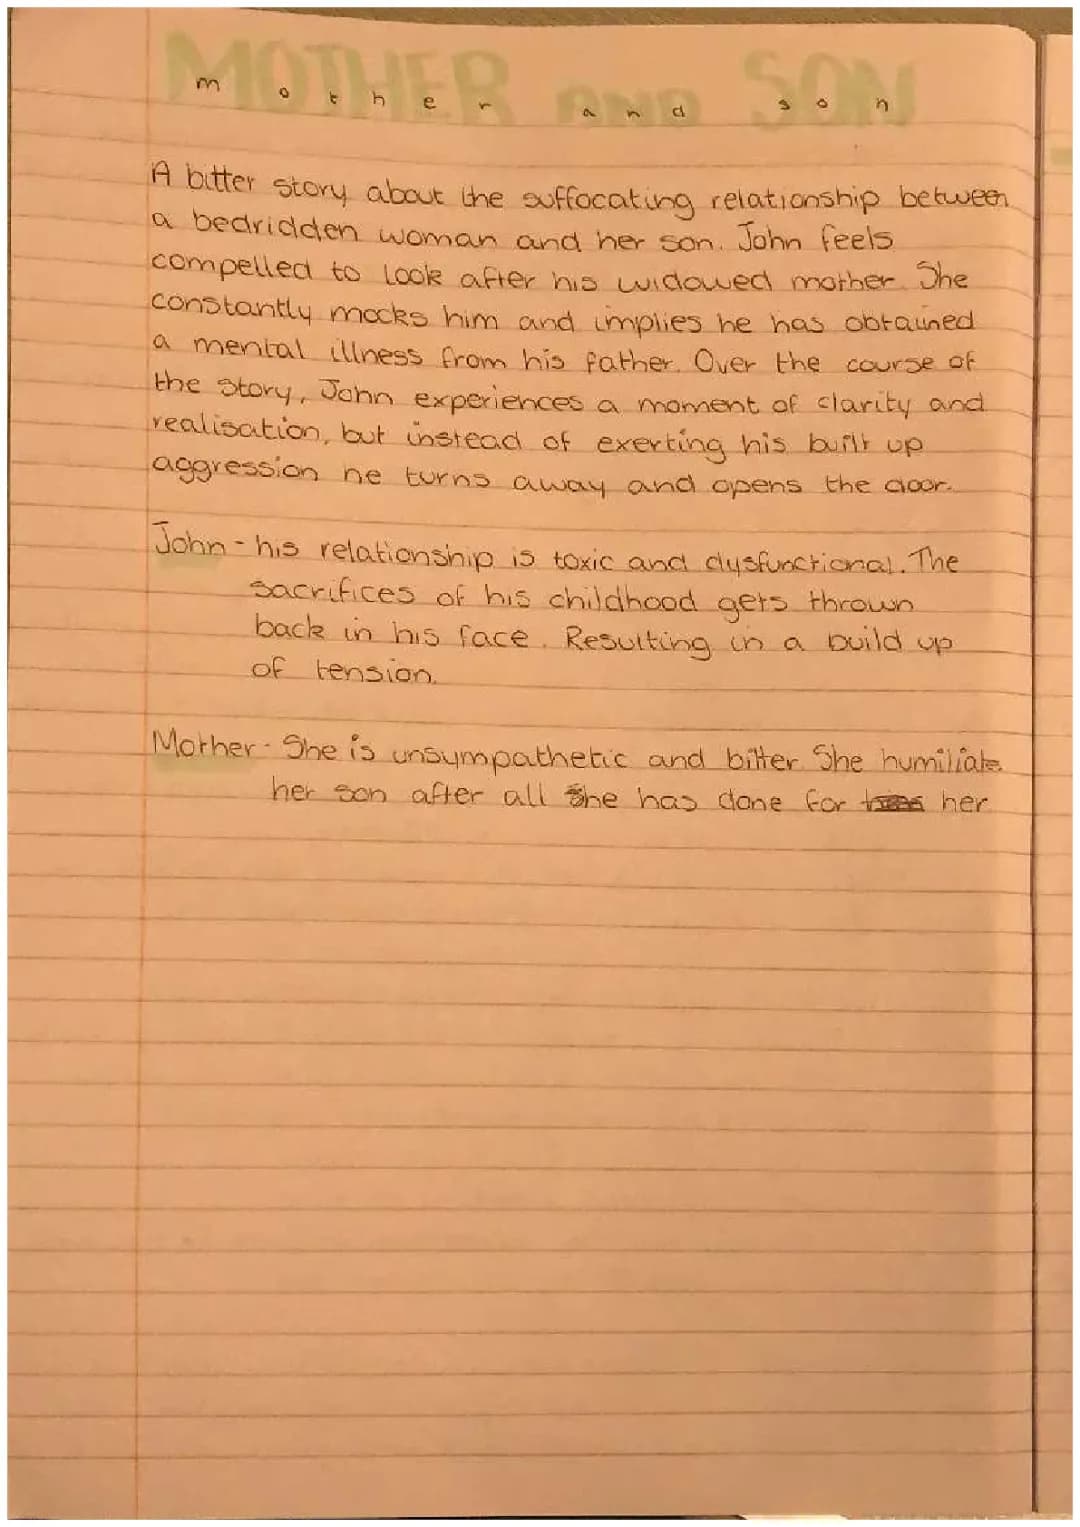 MOTHER AND SON
mother and son
A bitter story about the suffocating relationship between
a bedridden woman and her son. John feels
compelled to look after his widowed mother. She
constantly mocks him and implies he has obtained
a mental illness from his father. Over the course of
the story, John experiences a moment of clarity and
realisation, but instead of exerting his built up
aggression he turns away and opens the door.
John - his relationship is toxic and dysfunctional. The
sacrifices of his childhood gets thrown
back in his face. Resulting in a build up
of tension.
Mother - She is unsympathetic and bitter. She humiliate
her son after all she has done for her